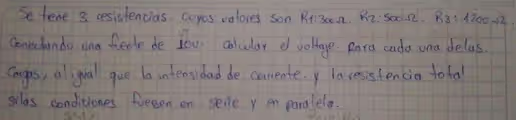 Se tiene 3 resistencias cuyos valores son R1:300Ω R2:500Ω R3:1200Ω
Conectando una fuente de 10v. calcular el voltaje para cada una de las
Cargas, al igual que la intensidad de corriente y la resistencia total
si las condiciones fuesen en serie y en paralelo.